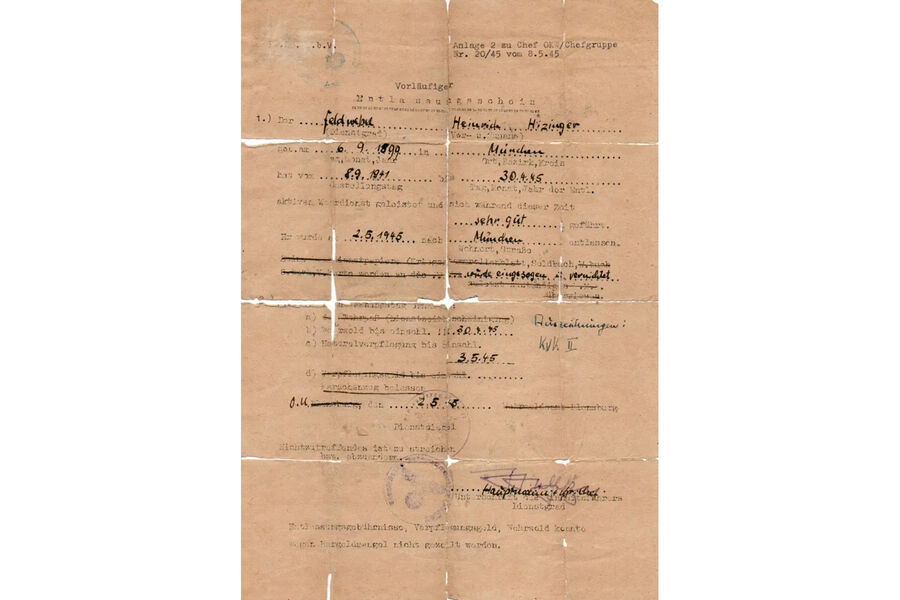 b.V.
Anlage 2 zu Chef OKW/Chefgruppe
Nr. 20/45 vom 8.5.45
Vorläufiger
Entlassungsschein
1.) Der Feldwebel Heinrich Hizinger
(Dienstgrad) (Vor- u. Zuname)
geb. am 6.9.1899 in München
Tag, Monat, Jahr Ort, Bezirk, Kreis
hat vom 8.9.1941 bis 30.4.45
Gestellungstag Tag, Monat, Jahr der Entl.
aktiven Wehrdienst geleistet und sich während dieser Zeit
sehr gut geführt.
Er wurde am 2.5.1945 nach München entlassen.
Wohnort, Straße
Soldbuch,
wurde eingezogen u. vernichtet
b) Wehrsold bis einschl. 30.4.45
Auszeichnungen:
KVK II
c) Naturalverpflegung bis einschl.
3.5.45
d) Verpflegungsgeld bis einschl.
Marschanzug belassen
O.U. den 2.5.45
Wehrmeldeamt Flensburg
Dienstsiegel
Nichtzutreffendes ist zu streichen
bzw. abzuändern.
Hauptmann u.
Unterschrift
Dienstgrad
Entlassungsgebührnisse, Verpflegungsgeld, Wehrsold konnte
wegen Bargeldmangel nicht gezahlt werden.